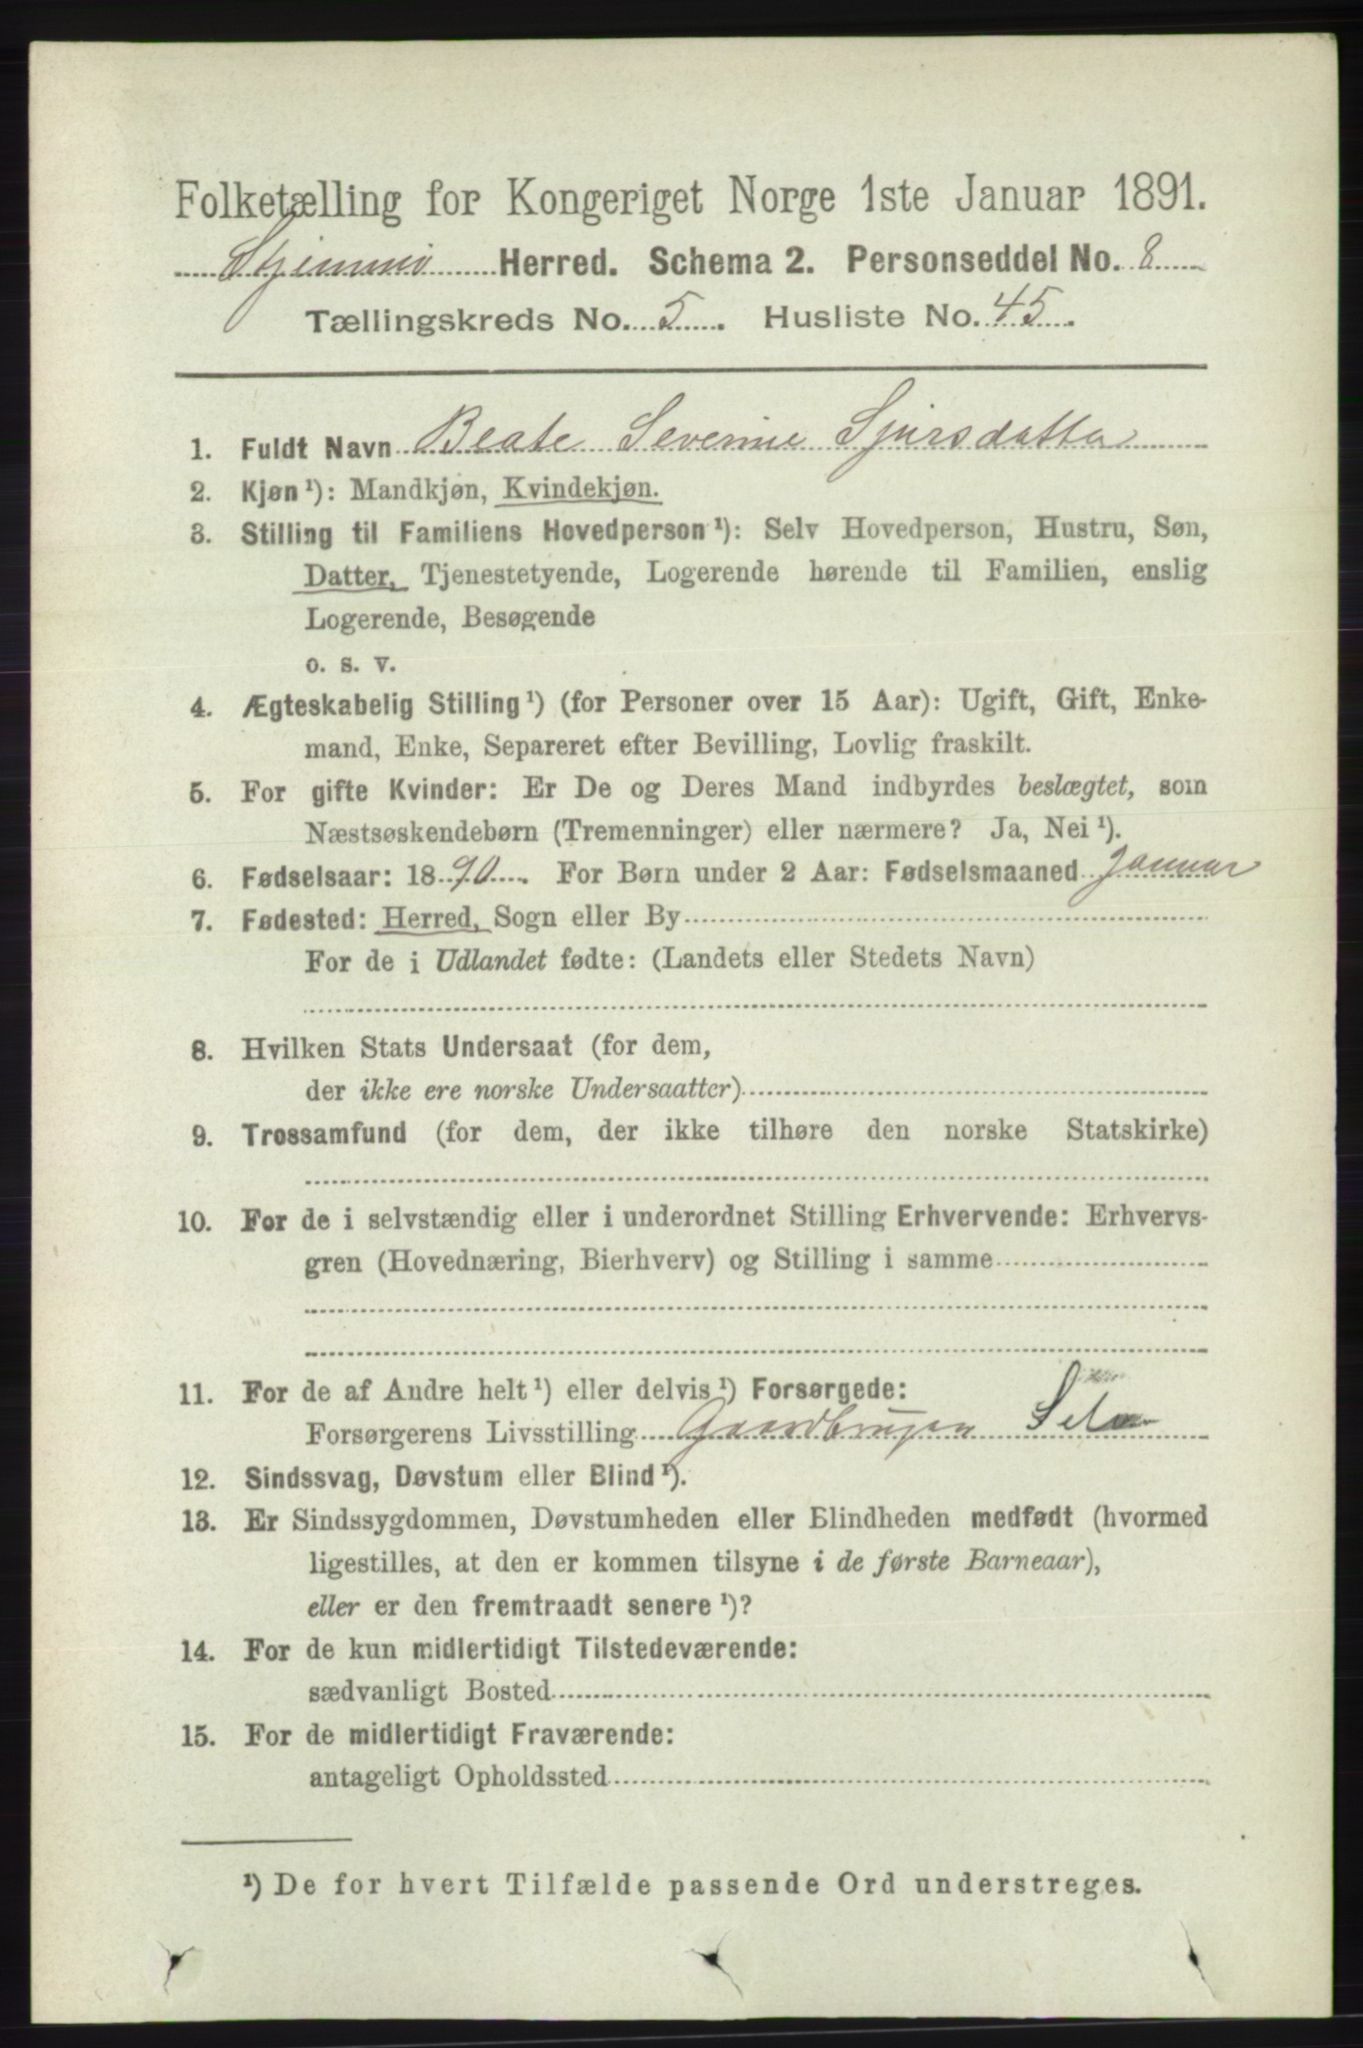 Folketælling for Kongeriget Norge 1ste Januar 1891.
Herred. Schema 2. Personseddel No. 8
Tællingskreds No. 5. Husliste No. 45.
1. Fuldt Navn Beate Severine Sjursdatter
2. Kjøn ¹): Mandkjøn, Kvindekjøn.
3. Stilling til Familiens Hovedperson ¹): Selv Hovedperson, Hustru, Søn,
Datter, Tjenestetyende, Logerende hørende til Familien, enslig
Logerende, Besøgende
o. s. v.
4. Ægteskabelig Stilling ¹) (for Personer over 15 Aar): Ugift, Gift, Enke-
mand, Enke, Separeret efter Bevilling, Lovlig fraskilt.
5. For gifte Kvinder: Er De og Deres Mand indbyrdes beslægtet, som
Næstsøskendebørn (Tremenninger) eller nærmere? Ja, Nei ¹).
6. Fødselsaar: 1890. For Børn under 2 Aar: Fødselsmaaned Januar
7. Fødested: Herred, Sogn eller By
For de i Udlandet fødte: (Landets eller Stedets Navn)
8. Hvilken Stats Undersaat (for dem,
der ikke ere norske Undersaatter)
9. Trossamfund (for dem, der ikke tilhøre den norske Statskirke)
10. For de i selvstændig eller i underordnet Stilling Erhvervende: Erhvervs-
gren (Hovednæring, Bierhverv) og Stilling i samme
11. For de af Andre helt ¹) eller delvis ¹) Forsørgede:
Forsørgerens Livsstilling Gaardbruger
12. Sindssvag, Døvstum eller Blind ¹).
13. Er Sindssygdommen, Døvstumheden eller Blindheden medfødt (hvormed
ligestilles, at den er kommen tilsyne i de første Barneaar),
eller er den fremtraadt senere ¹)?
14. For de kun midlertidigt Tilstedeværende:
sædvanligt Bosted
15. For de midlertidigt Fraværende:
antageligt Opholdssted
¹) De for hvert Tilfælde passende Ord understreges.